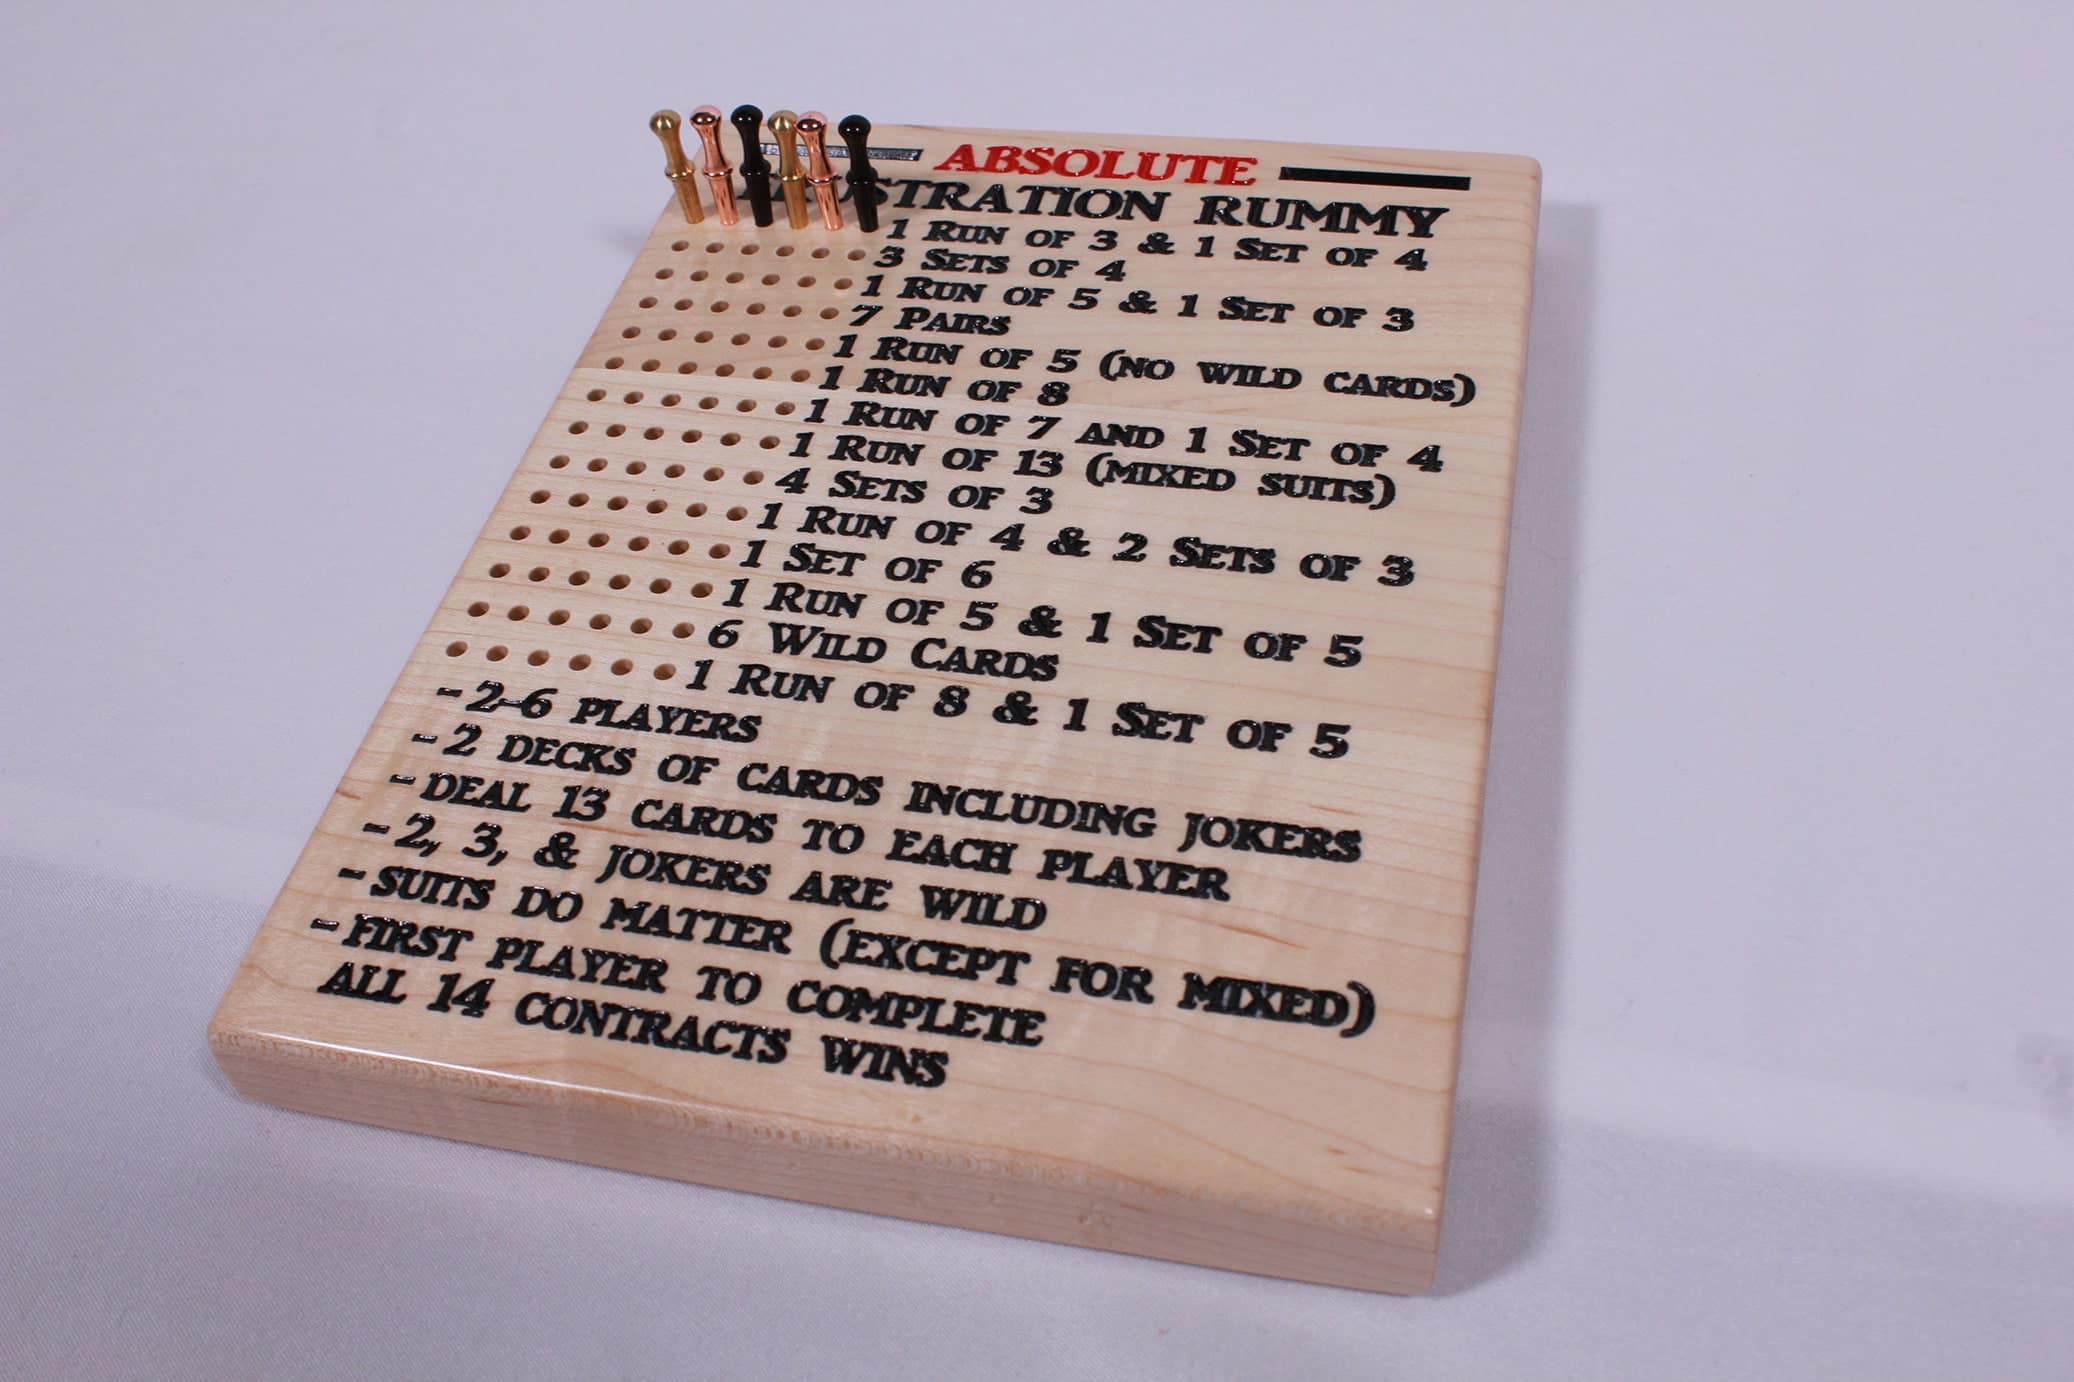 ABSOLUTE
RUMMY
1 RUN OF 3 & 1 SET OF 4
3 SETS OF 4
1 RUN OF 5 & 1 SET OF 3
7 PAIRS
1 RUN OF 5 (NO WILD CARDS)
1 RUN OF 8
1 RUN OF 7 AND 1 SET OF 4
1 RUN OF 13 (MIXED SUITS)
4 SETS OF 3
1 RUN OF 4 & 2 SETS OF 3
1 SET OF 6
1 RUN OF 5 & 1 SET OF 5
6 WILD CARDS
1 RUN OF 8 & 1 SET OF 5
-2-6 PLAYERS
-2 DECKS OF CARDS INCLUDING JOKERS
-DEAL 13 CARDS TO EACH PLAYER
-2, 3, & JOKERS ARE WILD
-SUITS DO MATTER (EXCEPT FOR MIXED)
-FIRST PLAYER TO COMPLETE
ALL 14 CONTRACTS WINS